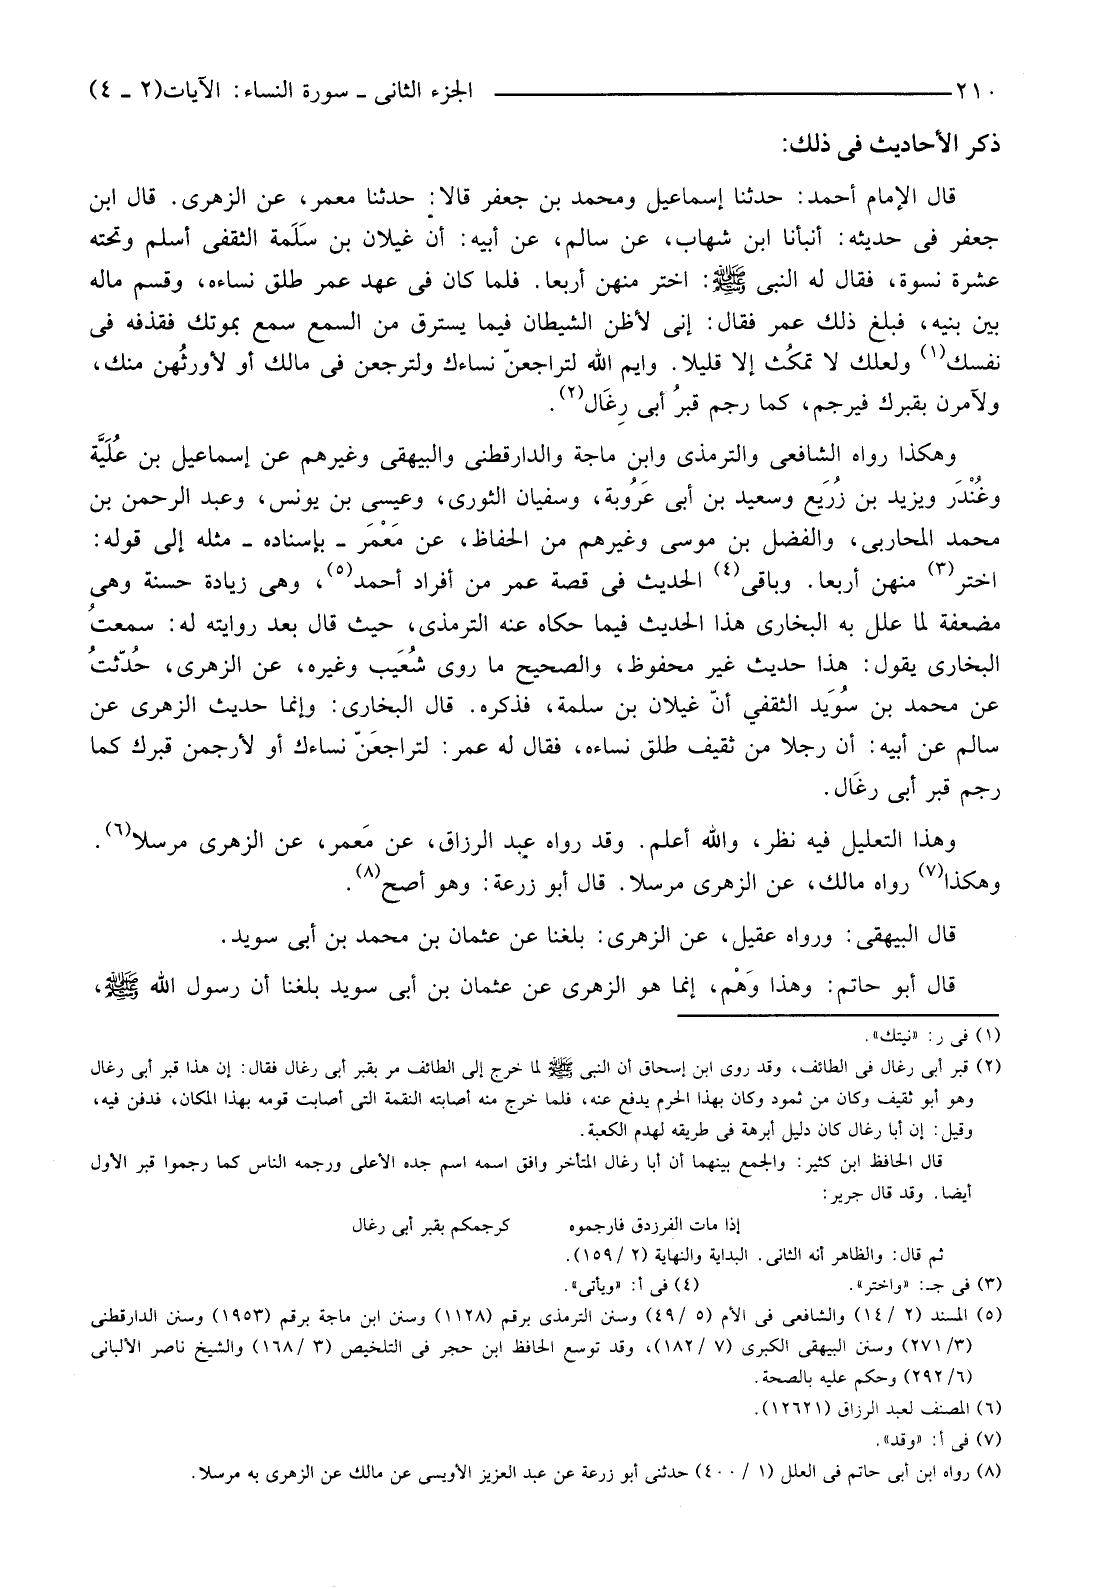 ٢١٠ ــــــــــــــــــــ الجزء الثانى ـ سورة النساء: الآيات(٢ ـ ٤)
ذكر الأحاديث فى ذلك:
قال الإمام أحمد: حدثنا إسماعيل ومحمد بن جعفر قالا: حدثنا معمر، عن الزهرى. قال ابن
جعفر فى حديثه: أنبأنا ابن شهاب، عن سالم، عن أبيه: أن غيلان بن سَلَمة الثقفى أسلم وتحته
عشرة نسوة، فقال له النبى ﷺ: اختر منهن أربعا. فلما كان فى عهد عمر طلق نساءه، وقسم ماله
بين بنيه، فبلغ ذلك عمر فقال: إنى لأظن الشيطان فيما يسترق من السمع سمع بموتك فقذفه فى
نفسك(١) ولعلك لا تمكُث إلا قليلا. وايم الله لتراجعنّ نساءك ولترجعن فى مالك أو لأورثُهن منك،
ولآمرن بقبرك فيرجم، كما رجم قبرُ أبى رِغَال(٢).
وهكذا رواه الشافعى والترمذى وابن ماجة والدارقطنى والبيهقى وغيرهم عن إسماعيل بن عُلَيَّة
وغُنْدَر ويزيد بن زُرَيع وسعيد بن أبى عَرُوبة، وسفيان الثورى، وعيسى بن يونس، وعبد الرحمن بن
محمد المحاربى، والفضل بن موسى وغيرهم من الحفاظ، عن مَعْمَر ـ بإسناده ـ مثله إلى قوله:
اختر(٣) منهن أربعا. وباقى(٤) الحديث فى قصة عمر من أفراد أحمد(٥)، وهى زيادة حسنة وهى
مضعفة لما علل به البخارى هذا الحديث فيما حكاه عنه الترمذى، حيث قال بعد روايته له: سمعتُ
البخارى يقول: هذا حديث غير محفوظ، والصحيح ما روى شُعَيب وغيره، عن الزهرى، حُدّثتُ
عن محمد بن سُوَيد الثقفي أنّ غيلان بن سلمة، فذكره. قال البخارى: وإنما حديث الزهرى عن
سالم عن أبيه: أن رجلا من ثقيف طلق نساءه، فقال له عمر: لتراجعَنّ نساءك أو لأرجمن قبرك كما
رجم قبر أبى رغَال.
وهذا التعليل فيه نظر، والله أعلم. وقد رواه عبد الرزاق، عن مَعمر، عن الزهرى مرسلا(٦).
وهكذا(٧) رواه مالك، عن الزهرى مرسلا. قال أبو زرعة: وهو أصح(٨).
قال البيهقى: ورواه عقيل، عن الزهرى: بلغنا عن عثمان بن محمد بن أبى سويد.
قال أبو حاتم: وهذا وَهْم، إنما هو الزهرى عن عثمان بن أبى سويد بلغنا أن رسول الله ﷺ،
(١) فى ر: «نيتك».
(٢) قبر أبى رغال فى الطائف، وقد روى ابن إسحاق أن النبى ﷺ لما خرج إلى الطائف مر بقبر أبى رغال فقال: إن هذا قبر أبى رغال
وهو أبو ثقيف وكان من ثمود وكان بهذا الحرم يدفع عنه، فلما خرج منه أصابته النقمة التى أصابت قومه بهذا المكان، فدفن فيه،
وقيل: إن أبا رغال كان دليل أبرهة فى طريقه لهدم الكعبة.
قال الحافظ ابن كثير: والجمع بينهما أن أبا رغال المتأخر وافق اسمه اسم جده الأعلى ورجمه الناس كما رجموا قبر الأول
أيضا. وقد قال جرير:
إذا مات الفرزدق فارجموه كرجمكم بقبر أبى رغال
ثم قال: والظاهر أنه الثانى. البداية والنهاية (٢ / ١٥٩).
(٣) فى جـ: «واختر». (٤) فى أ: «ويأتى».
(٥) المسند (٢ / ١٤) والشافعى فى الأم (٥ / ٤٩) وسنن الترمذى برقم (١١٢٨) وسنن ابن ماجة برقم (١٩٥٣) وسنن الدارقطنى
(٣/ ٢٧١) وسنن البيهقى الكبرى (٧ / ١٨٢)، وقد توسع الحافظ ابن حجر فى التلخيص (٣ / ١٦٨) والشيخ ناصر الألبانى
(٦/ ٢٩٢) وحكم عليه بالصحة.
(٦) المصنف لعبد الرزاق (١٢٦٢١).
(٧) فى أ: «وقد».
(٨) رواه ابن أبى حاتم فى العلل (١ / ٤٠٠) حدثنى أبو زرعة عن عبد العزيز الأويسى عن مالك عن الزهرى به مرسلا.